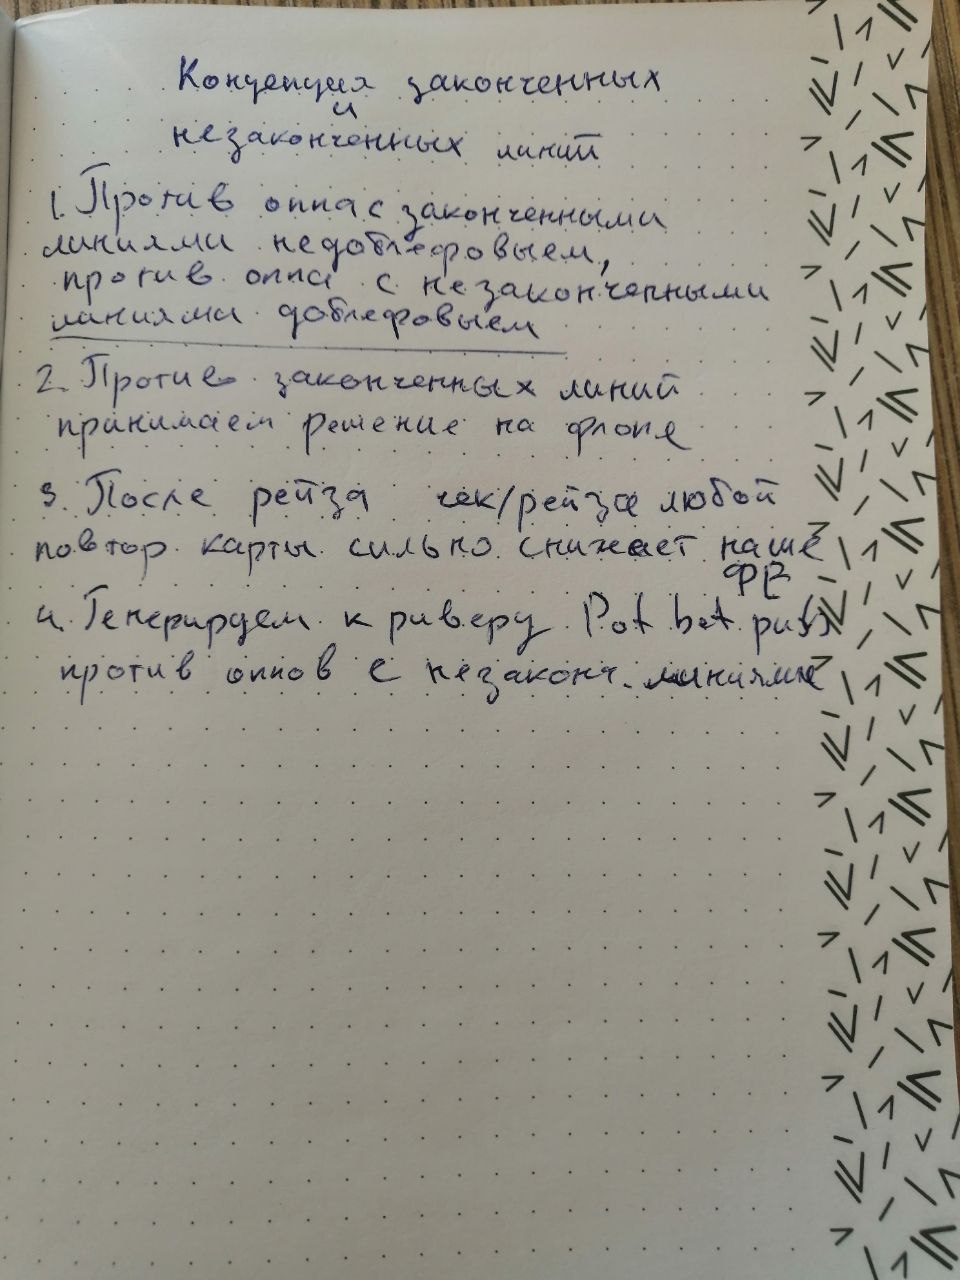 Концепция законченных
и
незаконченных линий
1. Против оппа с законченными
линиями недоблефовыем,
против оппа с незаконченными
линиями доблефовыем
2. Против законченных линий
принимаем решение на флопе
3. После рейза чек/рейза любой
повтор карты сильно снижает наше
ФЕ
4. Генерируем к риверу Pot bet
против оппов с незаконч. линиями